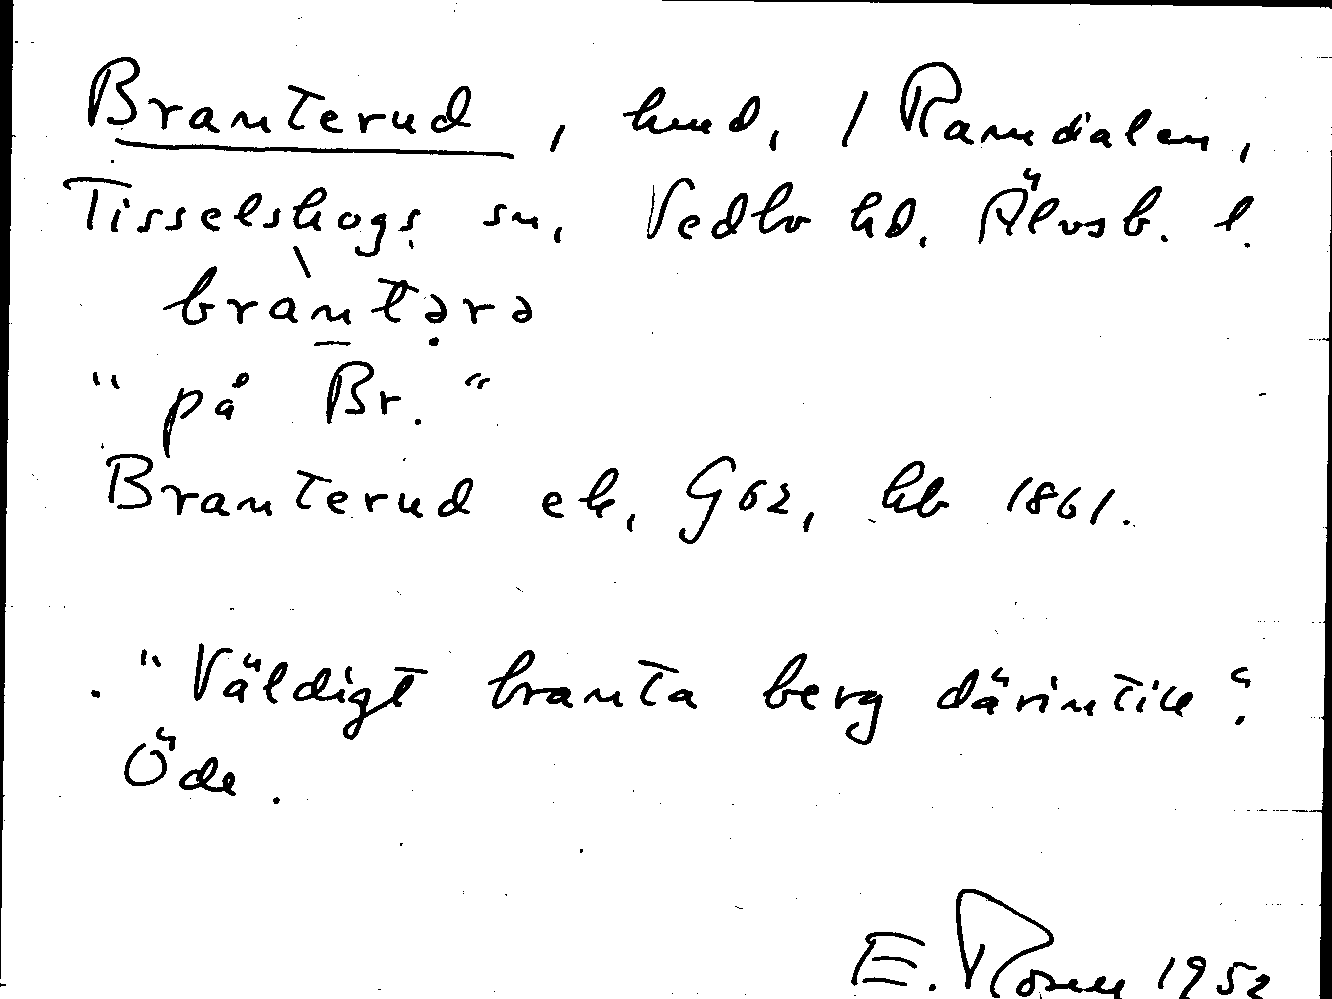 Branterud, hmd, / Ramdalen,
Tisselskogs sn, Vedbo hd. Älvsb. l.
bràntərə
"på Br."
Branterud ek, G62, hb 1861.
"Väldigt branta berg därintill".
Öde.
E. Rosell 1952